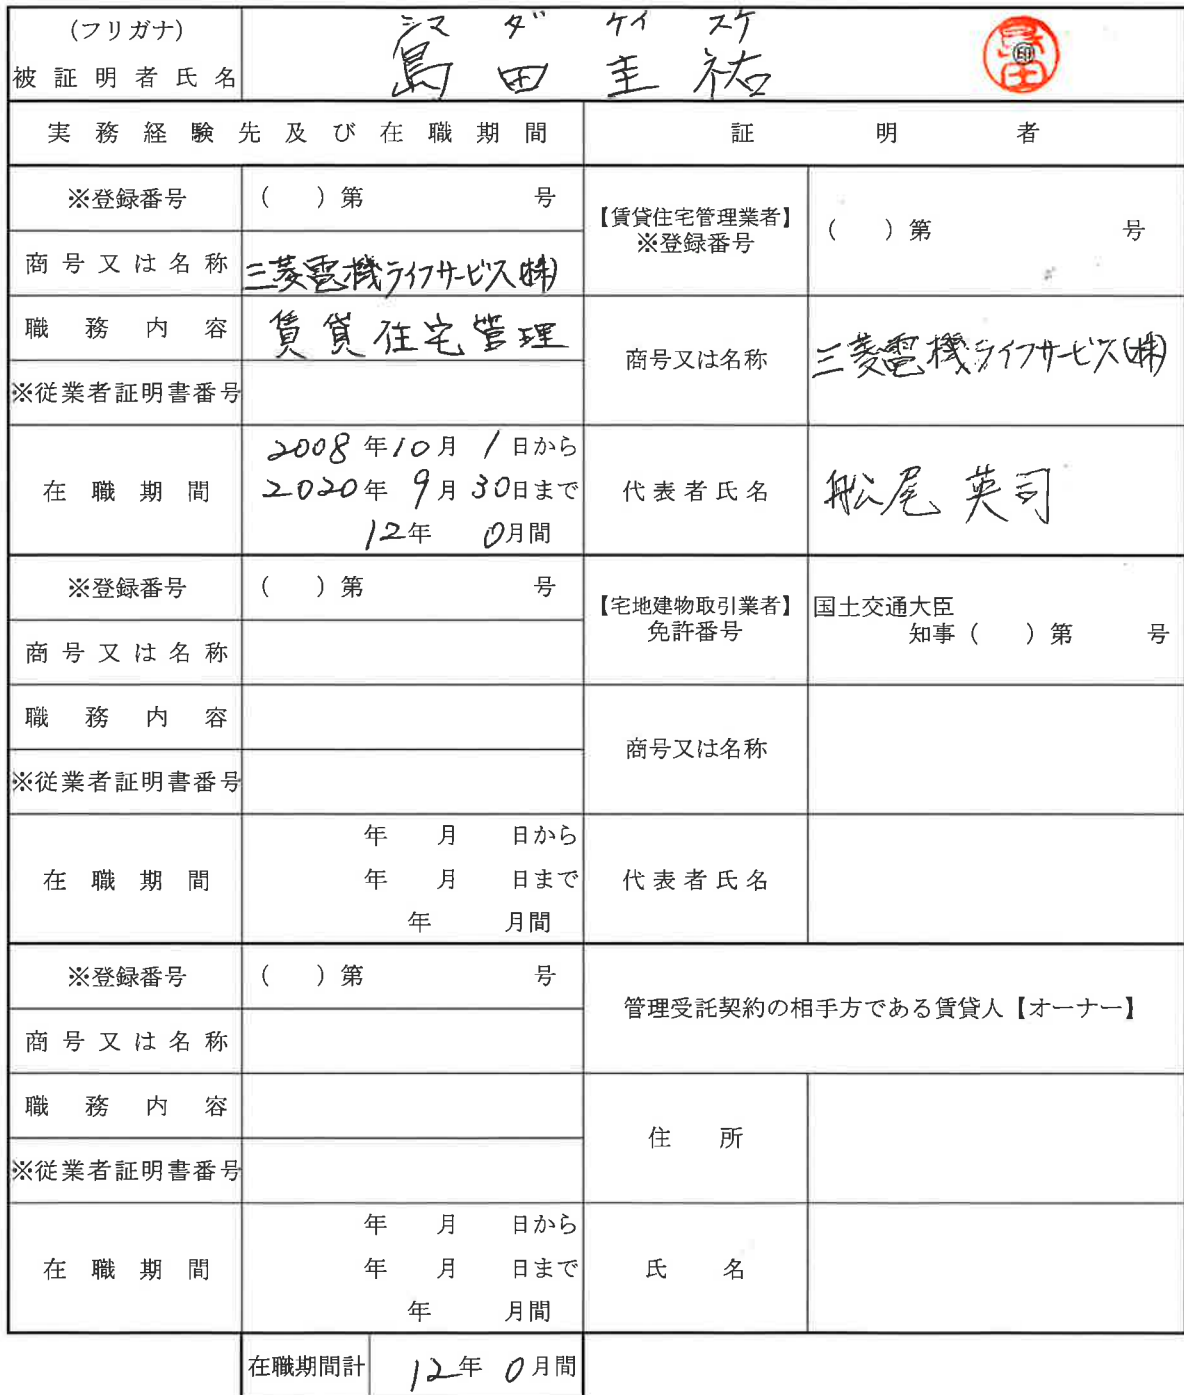 (フリガナ) シマ ダ ケイ スケ
被証明者氏名 島田圭祐 島田 ㊞
実務経験先及び在職期間 証明者
※登録番号 ( )第 号 【賃貸住宅管理業者】 ※登録番号 ( )第 号
商号又は名称 三菱電機ライフサービス(株)
職務内容 賃貸住宅管理 商号又は名称 三菱電機ライフサービス(株)
※従業者証明書番号
2008年10月1日から
在職期間 2020年9月30日まで 代表者氏名 舩尾 英司
12年 0月間
※登録番号 ( )第 号 【宅地建物取引業者】 免許番号 国土交通大臣 知事( )第 号
商号又は名称
職務内容 商号又は名称
※従業者証明書番号
年 月 日から
在職期間 年 月 日まで 代表者氏名
年 月間
※登録番号 ( )第 号 管理受託契約の相手方である賃貸人【オーナー】
商号又は名称
職務内容 住所
※従業者証明書番号
年 月 日から
在職期間 年 月 日まで 氏名
年 月間
在職期間計 12年 0月間